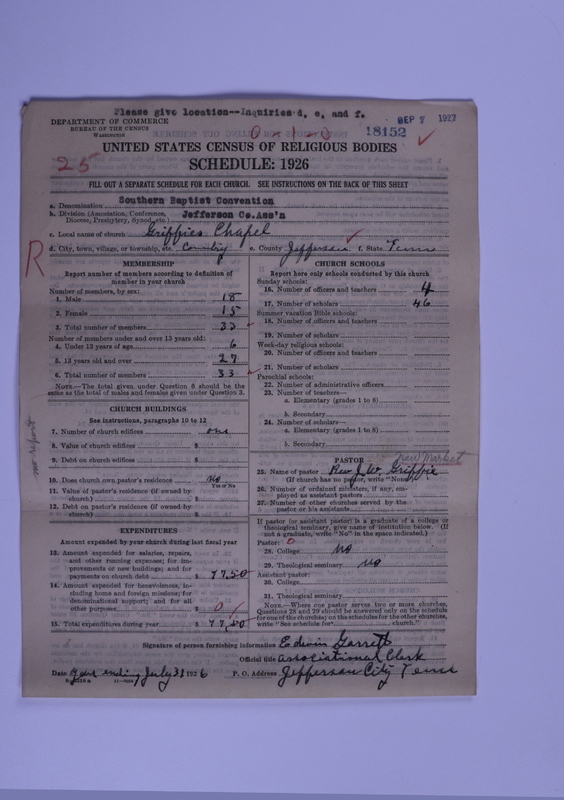 Please give location--Inquiries d, e, and f.
DEPARTMENT OF COMMERCE
BUREAU OF THE CENSUS
WASHINGTON
SEP 7 1927
0-1-0
18152
25
UNITED STATES CENSUS OF RELIGIOUS BODIES
SCHEDULE: 1926
FILL OUT A SEPARATE SCHEDULE FOR EACH CHURCH. SEE INSTRUCTIONS ON THE BACK OF THIS SHEET
a. Denomination Southern Baptist Convention
b. Division (Association, Conference, Diocese, Presbytery, Synod, etc.) Jefferson Co. Ass'n
c. Local name of church Griffies Chapel
d. City, town, village, or township, etc. Country e. County Jefferson f. State Tenn
R
MEMBERSHIP
Report number of members according to definition of
member in your church
Number of members, by sex:
1. Male 18
2. Female 15
3. Total number of members 33
Number of members under and over 13 years old:
4. Under 13 years of age 6
5. 13 years old and over 27
6. Total number of members 33
NOTE.—The total given under Question 6 should be the
same as the total of males and females given under Question 3.
CHURCH BUILDINGS
See instructions, paragraphs 10 to 12
7. Number of church edifices one
8. Value of church edifices $
9. Debt on church edifices $
no report
10. Does church own pastor's residence No
Yes or No
11. Value of pastor's residence (if owned by
church) $
12. Debt on pastor's residence (if owned by
church) $
EXPENDITURES
Amount expended by church during last fiscal year
13. Amount expended for salaries, repairs,
and other running expenses; for im-
provements or new buildings; and for
payments on church debt $ 77.50
14. Amount expended for benevolences, in-
cluding home and foreign missions; for
denominational support; and for all
other purposes $ 0
15. Total expenditures during year $ 77.50
CHURCH SCHOOLS
Report here only schools conducted by this church
Sunday schools:
16. Number of officers and teachers 4
17. Number of scholars 46
Summer vacation Bible schools:
18. Number of officers and teachers
19. Number of scholars
Week-day religious schools:
20. Number of officers and teachers
21. Number of scholars
Parochial schools:
22. Number of administrative officers
23. Number of teachers—
a. Elementary (grades 1 to 8)
b. Secondary
24. Number of scholars—
a. Elementary (grades 1 to 8)
b. Secondary
PASTOR New Market
25. Name of pastor Rev J.W. Griffie
(If church has no pastor, write "None")
26. Number of ordained ministers, if any, em-
ployed as assistant pastors
27. Number of other churches served by the
pastor or his assistants
If pastor (or assistant pastor) is a graduate of a college or
theological seminary, give name of institution below. (If
not a graduate, write "No" in the space indicated.)
Pastor: 0
28. College No
29. Theological seminary No
Assistant pastor:
30. College
31. Theological seminary
NOTE.—Where one pastor serves two or more churches,
Questions 28 and 29 should be answered only on the schedule
for one of the churches; on the schedules for the other churches,
write "See schedule for church."
Signature of person furnishing information Edwin Garrett
Official title Associational Clerk
Date Year ending July 31 1926 P. O. Address Jefferson City Tenn